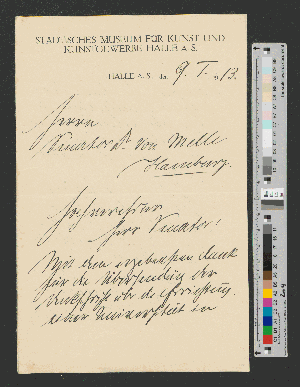 STÄDTISCHES MUSEUM FÜR KUNST UND
KUNSTGEWERBE HALLE A.S.
HALLE A.S. d. 9. I. 1913.
Herrn
Senator Dr von Melle
Hamburg.
Hochverehrter
Herr Senator!
Mit dem ergebensten Dank
für die Übersendung der
Denkschrift über die Errichtung
einer Universität in